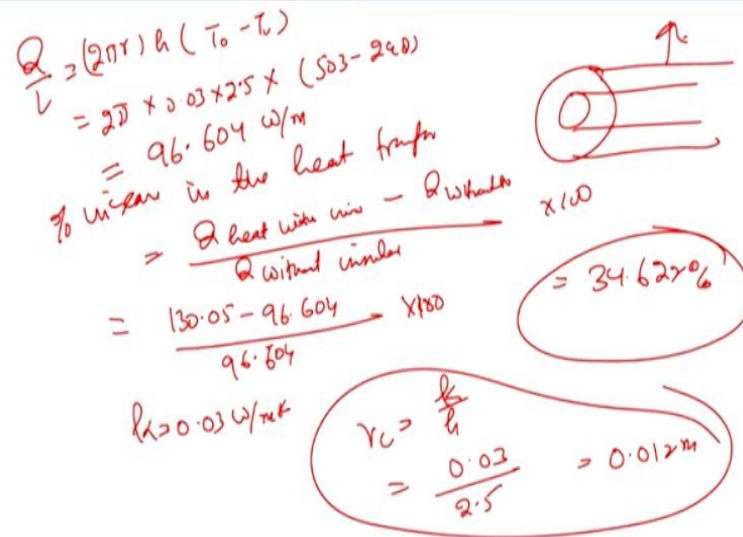 Q/L = (2πr) h (T₀ - Tc)
= 2π × 0.03 × 2.5 × (503 - 298)
= 96.604 W/m
% increase in the heat transfer
= (Q heat with ins - Q without) / (Q without insulat) × 100
= (130.05 - 96.604) / 96.604 × 100
= 34.622%
k = 0.03 W/mK
rc = k/h
= 0.03 / 2.5 = 0.012 m